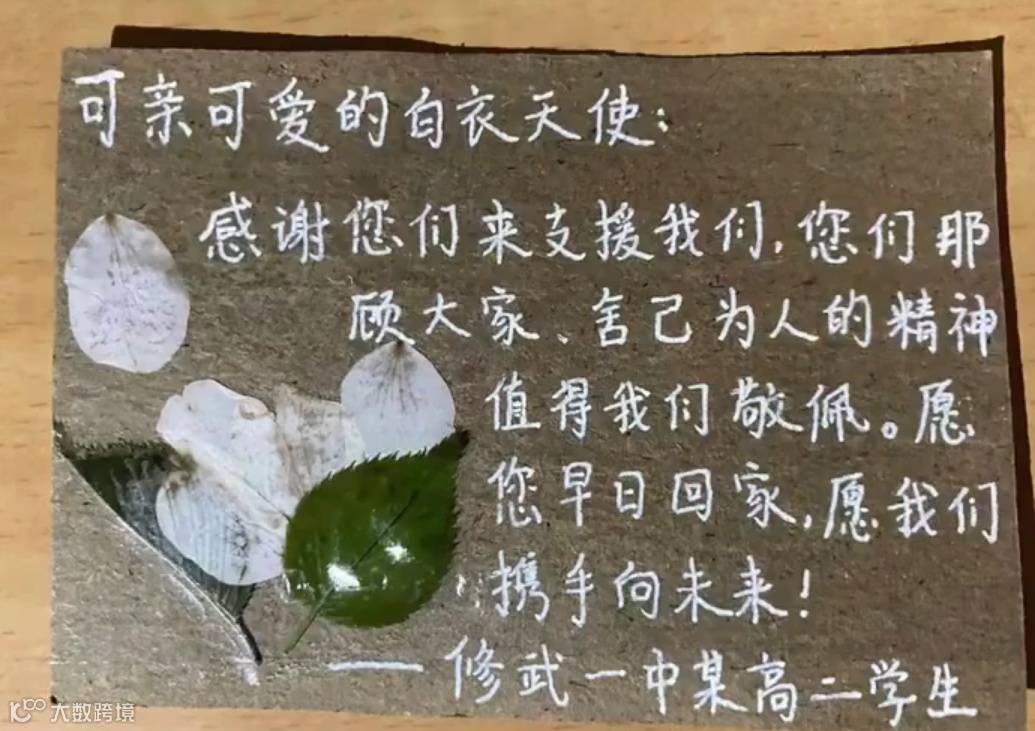 可亲可爱的白衣天使:
感谢您们来支援我们,您们那
顾大家、舍己为人的精神
值得我们敬佩。愿
您早日回家,愿我们
携手向未来!
——修武一中某高二学生
大数跨境